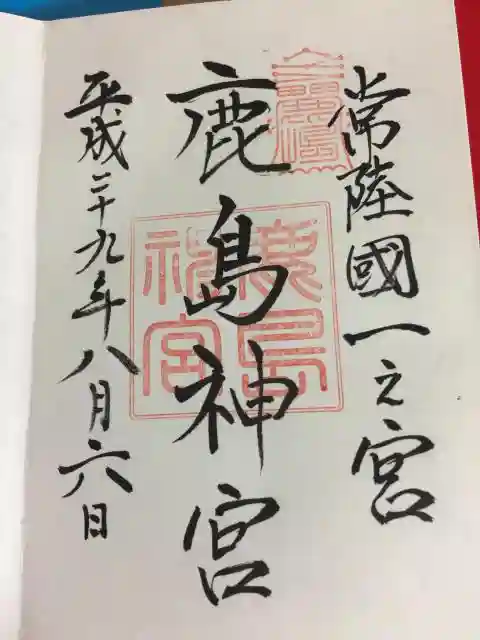 常陸國一之宮
鹿島神宮
平成二十九年八月六日
鹿島
神宮